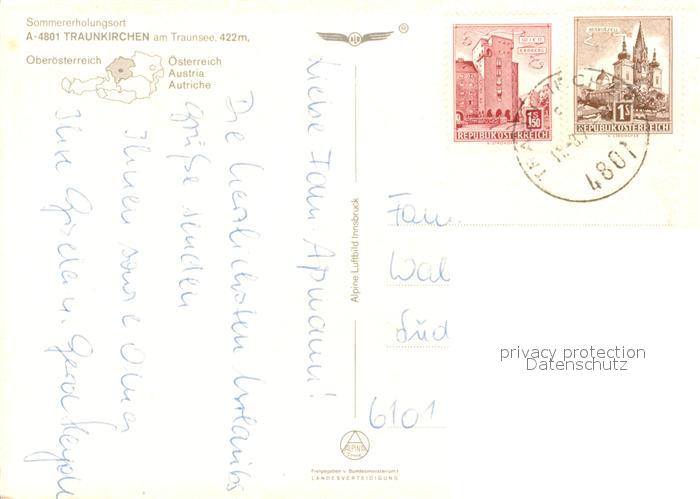 Sommererholungsort
A-4801 TRAUNKIRCHEN am Traunsee, 422m,
Oberösterreich
Österreich
Austria
Autriche
Liebe Fam.
Die herzlichsten Urlaubs
grüße senden
Ihnen sowie Oma
Ihre Gisela u. Gerd
Alpine Luftbild Innsbruck
®
WIEN
ERDBERG
1.50
REPUBLIK ÖSTERREICH
MARIAZELL
1S
REPUBLIK ÖSTERREICH
4801
Fam.
Wal
Süd
6101
privacy protection
Datenschutz
ALPINA
Freigegeben v. Bundesministerium f.
LANDESVERTEIDIGUNG